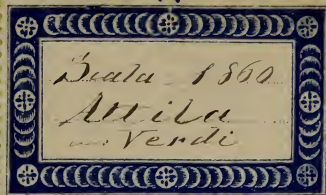 Scala 1860
Attila
Verdi